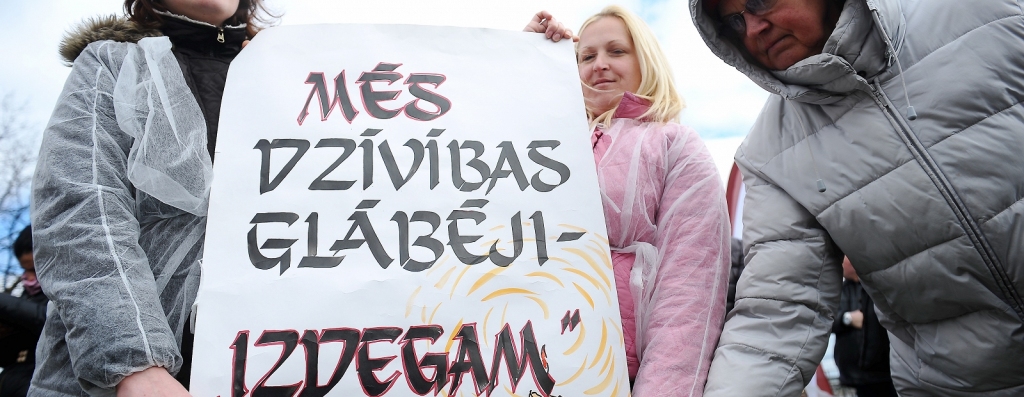 MĒS
DZĪVĪBAS
GLĀBĒJI-
„IZDEGAM”